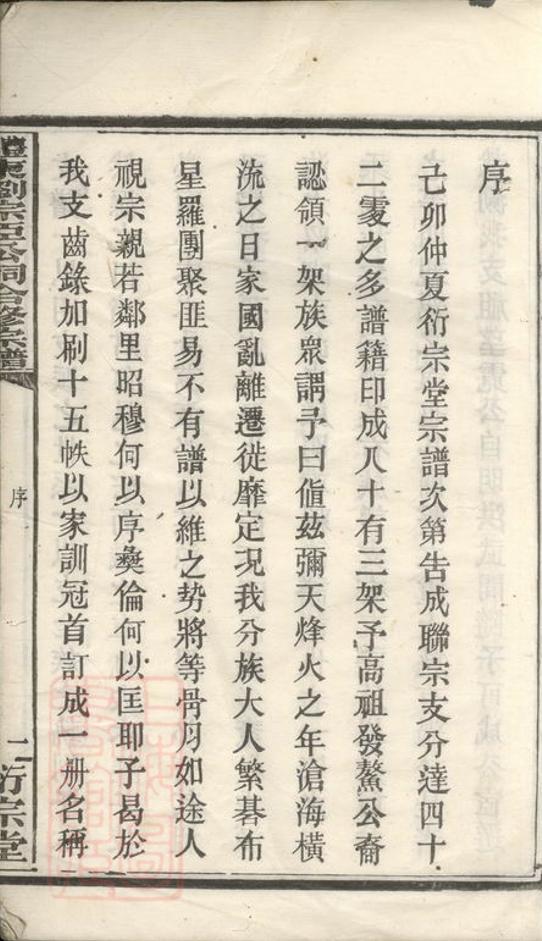 序
己卯仲夏衍宗堂宗譜次第告成聯宗支分達四十
二處之多譜籍印成八十有三架予高祖發鰲公裔
認領一架族眾謂予曰值茲彌天烽火之年滄海橫
流之日家國亂離遷徙靡定況我分族大人繁碁布
星羅團聚匪易不有譜以維之势將等骨月如途人
視宗親若鄰里昭穆何以序彜倫何以匡耶子曷於
我支齒錄加刷十五帙以家訓冠首訂成一册名稱
東劉宗臣公祠合修宗譜
序
二
衍宗堂